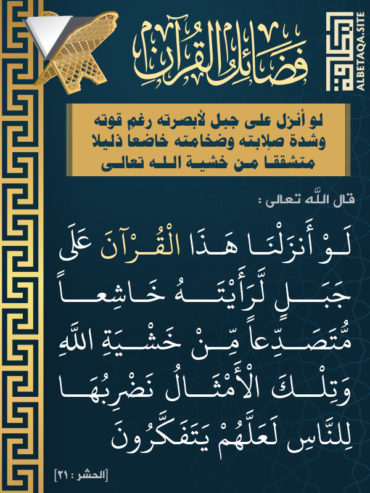 فضائل القرآن
البطاقة
ALBETAQA.SITE
لو أنزل على جبل لأبصرته رغم قوته
وشدة صلابته وضخامته خاضعاً ذليلا
متشققاً من خشية الله تعالى
قال الله تعالى :
لَوْ أَنزَلْنَا هَذَا الْقُرْآنَ عَلَى
جَبَلٍ لَّرَأَيْتَهُ خَاشِعاً
مُّتَصَدِّعاً مِّنْ خَشْيَةِ اللَّهِ
وَتِلْكَ الْأَمْثَالُ نَضْرِبُهَا
لِلنَّاسِ لَعَلَّهُمْ يَتَفَكَّرُونَ
[الحشر : ٢١]